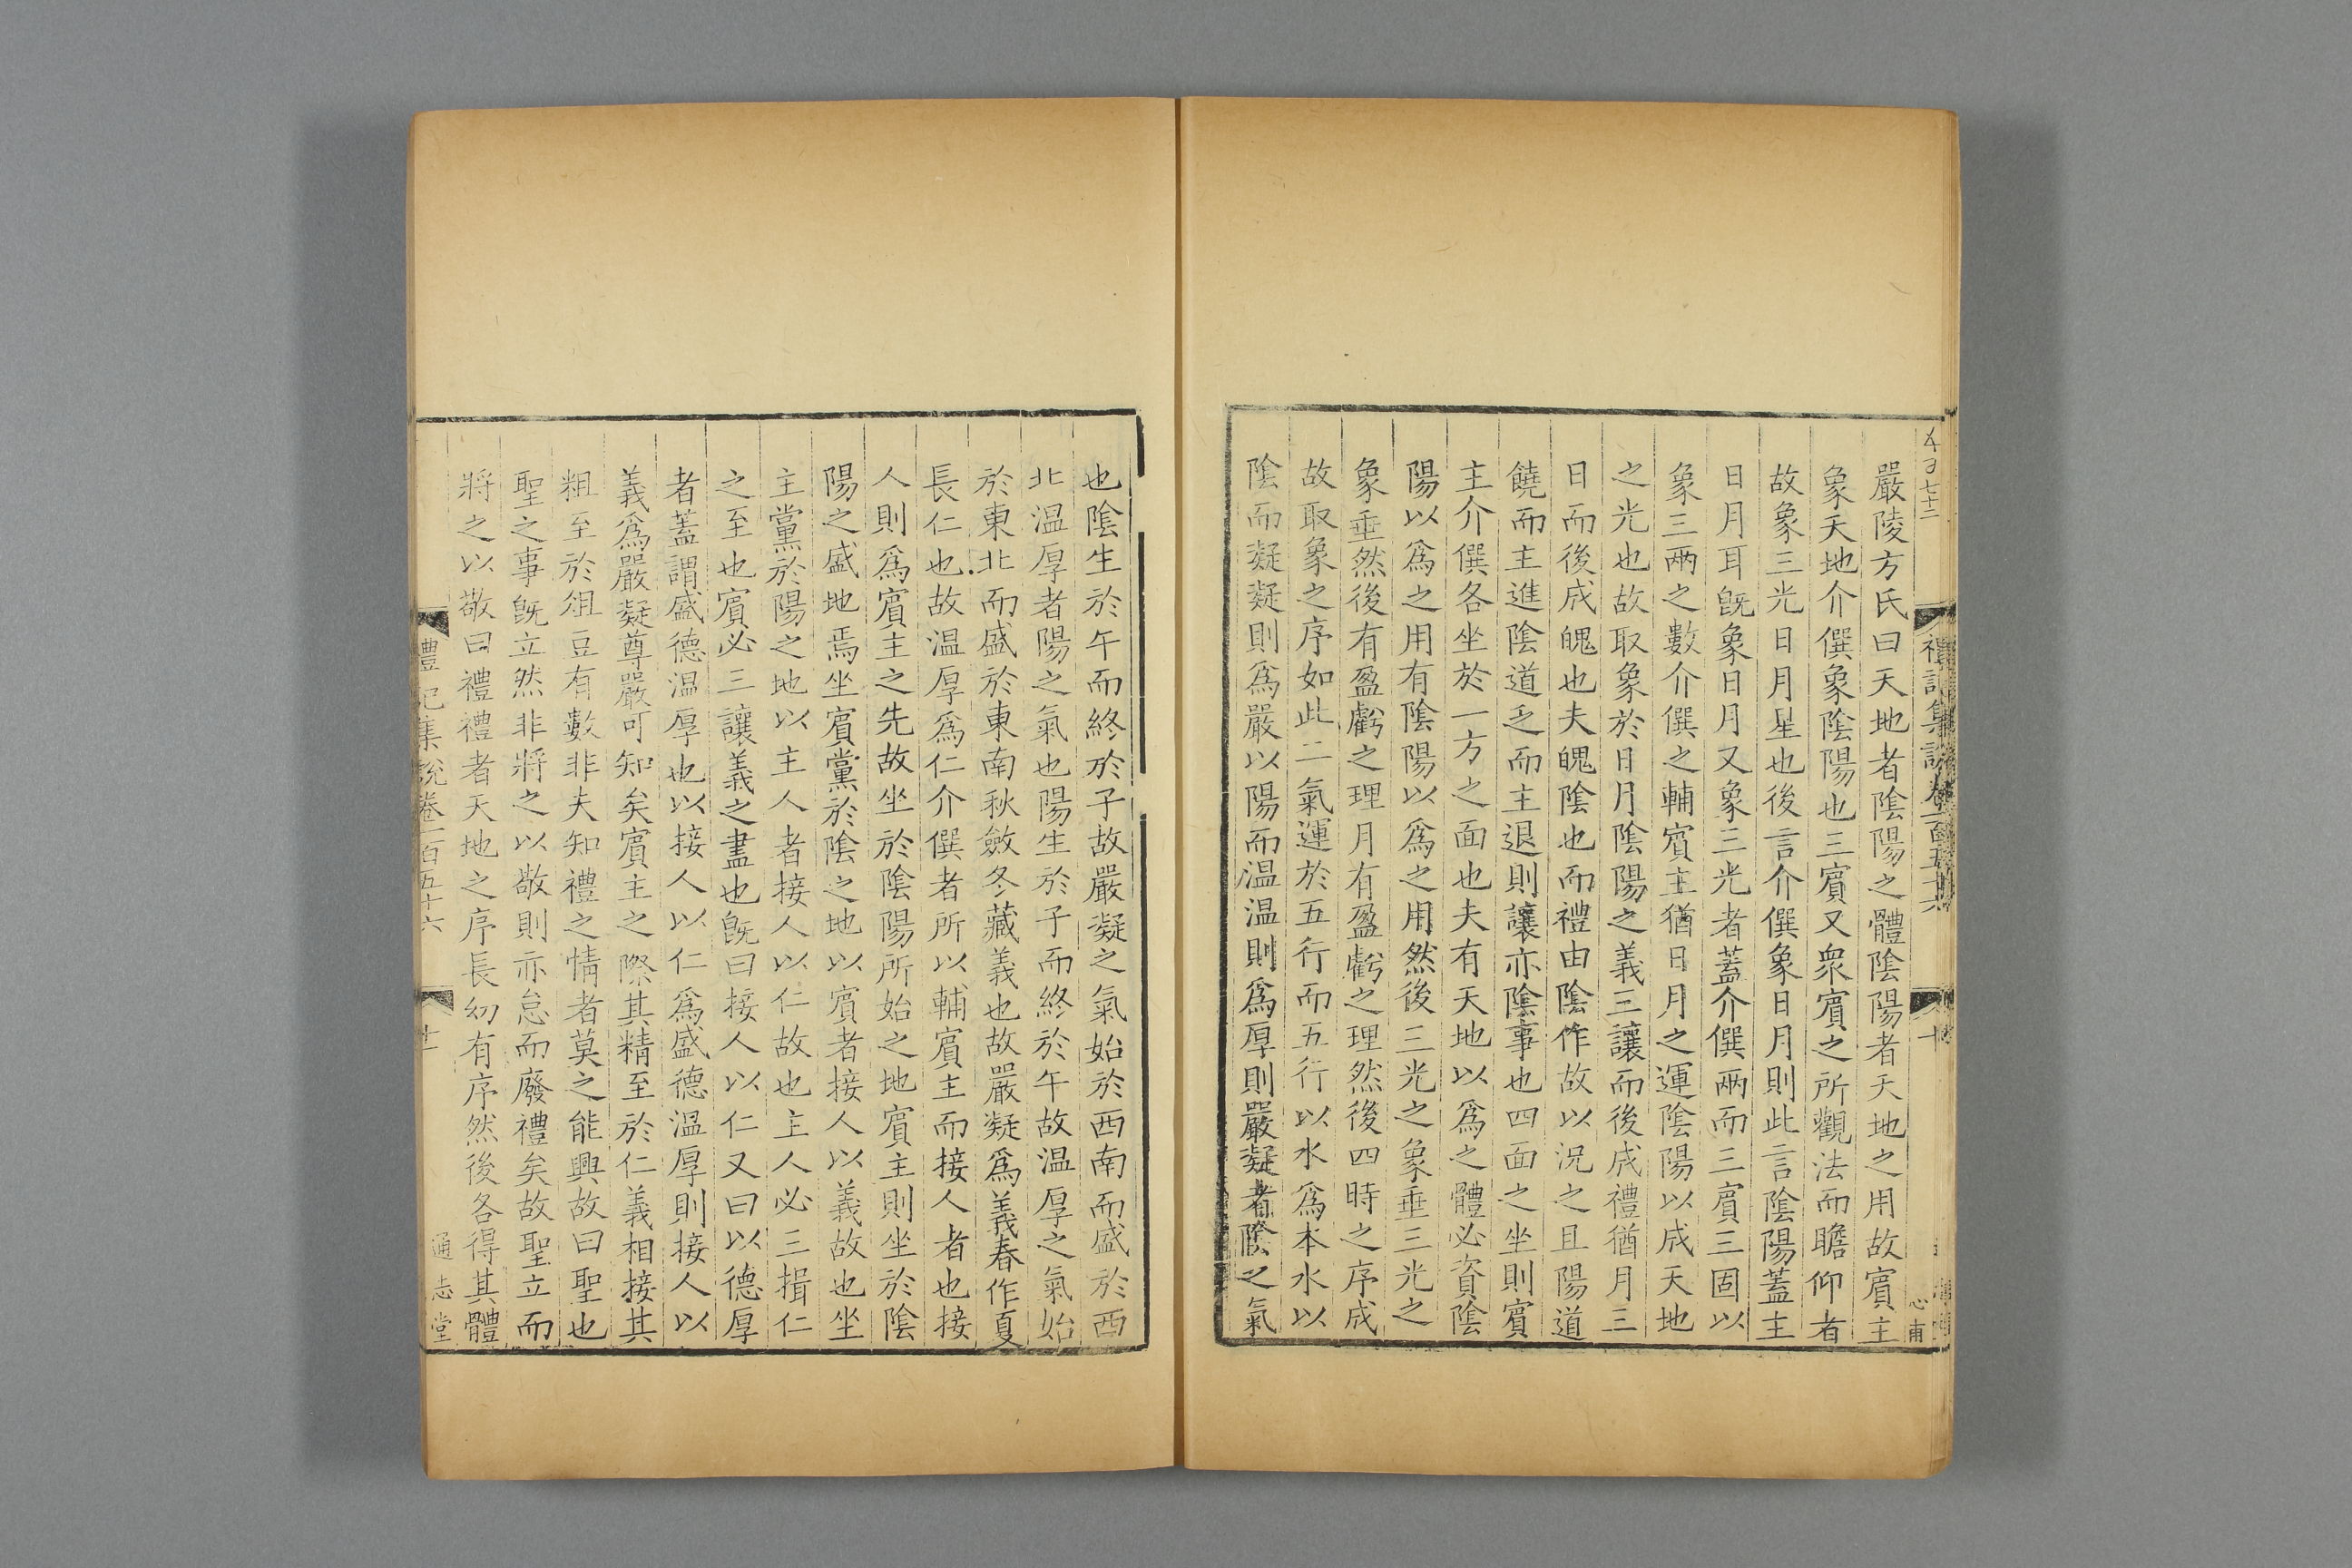 嚴陵方氏曰天地者陰陽之體陰陽者天地之用故賓主
象天地介僎象陰陽也三賓又衆賓之所觀法而瞻仰者
故象三光日月星也後言介僎象日月則此言陰陽蓋主
日月耳旣象日月又象三光者蓋介僎兩而三賓三固以
象三兩之數介僎之輔賓主猶日月之運陰陽以成天地
之光也故取象於日月陰陽之義三讓而後成禮猶月三
日而後成魄也夫魄陰也而禮由陰作故以況之且陽道
饒而主進陰道乏而主退則讓亦陰事也四面之坐則賓
主介僎各坐於一方之面也夫有天地以爲之體必資陰
陽以爲之用有陰陽以爲之用然後三光之象垂三光之
象垂然後有盈虧之理月有盈虧之理然後四時之序成
故取象之序如此二氣運於五行而五行以水爲本水以
陰而凝凝則爲嚴以陽而温温則爲厚則嚴凝者陰之氣
也陰生於午而終於子故嚴凝之氣始於西南而盛於西
北温厚者陽之氣也陽生於子而終於午故温厚之氣始
於東北而盛於東南秋斂冬藏義也故嚴凝爲義春作夏
長仁也故温厚爲仁介僎者所以輔賓主而接人者也接
人則爲賓主之先故坐於陰陽所始之地賓主則坐於陰
陽之盛地焉坐賓黨於陰之地以賓者接人以義故也坐
主黨於陽之地以主人者接人以仁故也主人必三揖仁
之至也賓必三讓義之盡也旣曰接人以仁又曰以德厚
者蓋謂盛德温厚也以接人以仁爲盛德温厚則接人以
義爲嚴凝尊嚴可知矣賓主之際其精至於仁義相接其
粗至於俎豆有數非夫知禮之情者莫之能興故曰聖也
聖之事旣立然非將之以敬則亦怠而廢禮矣故聖立而
將之以敬曰禮禮者天地之序長幼有序然後各得其體
禮記集說卷一百五十六
十一
通志堂